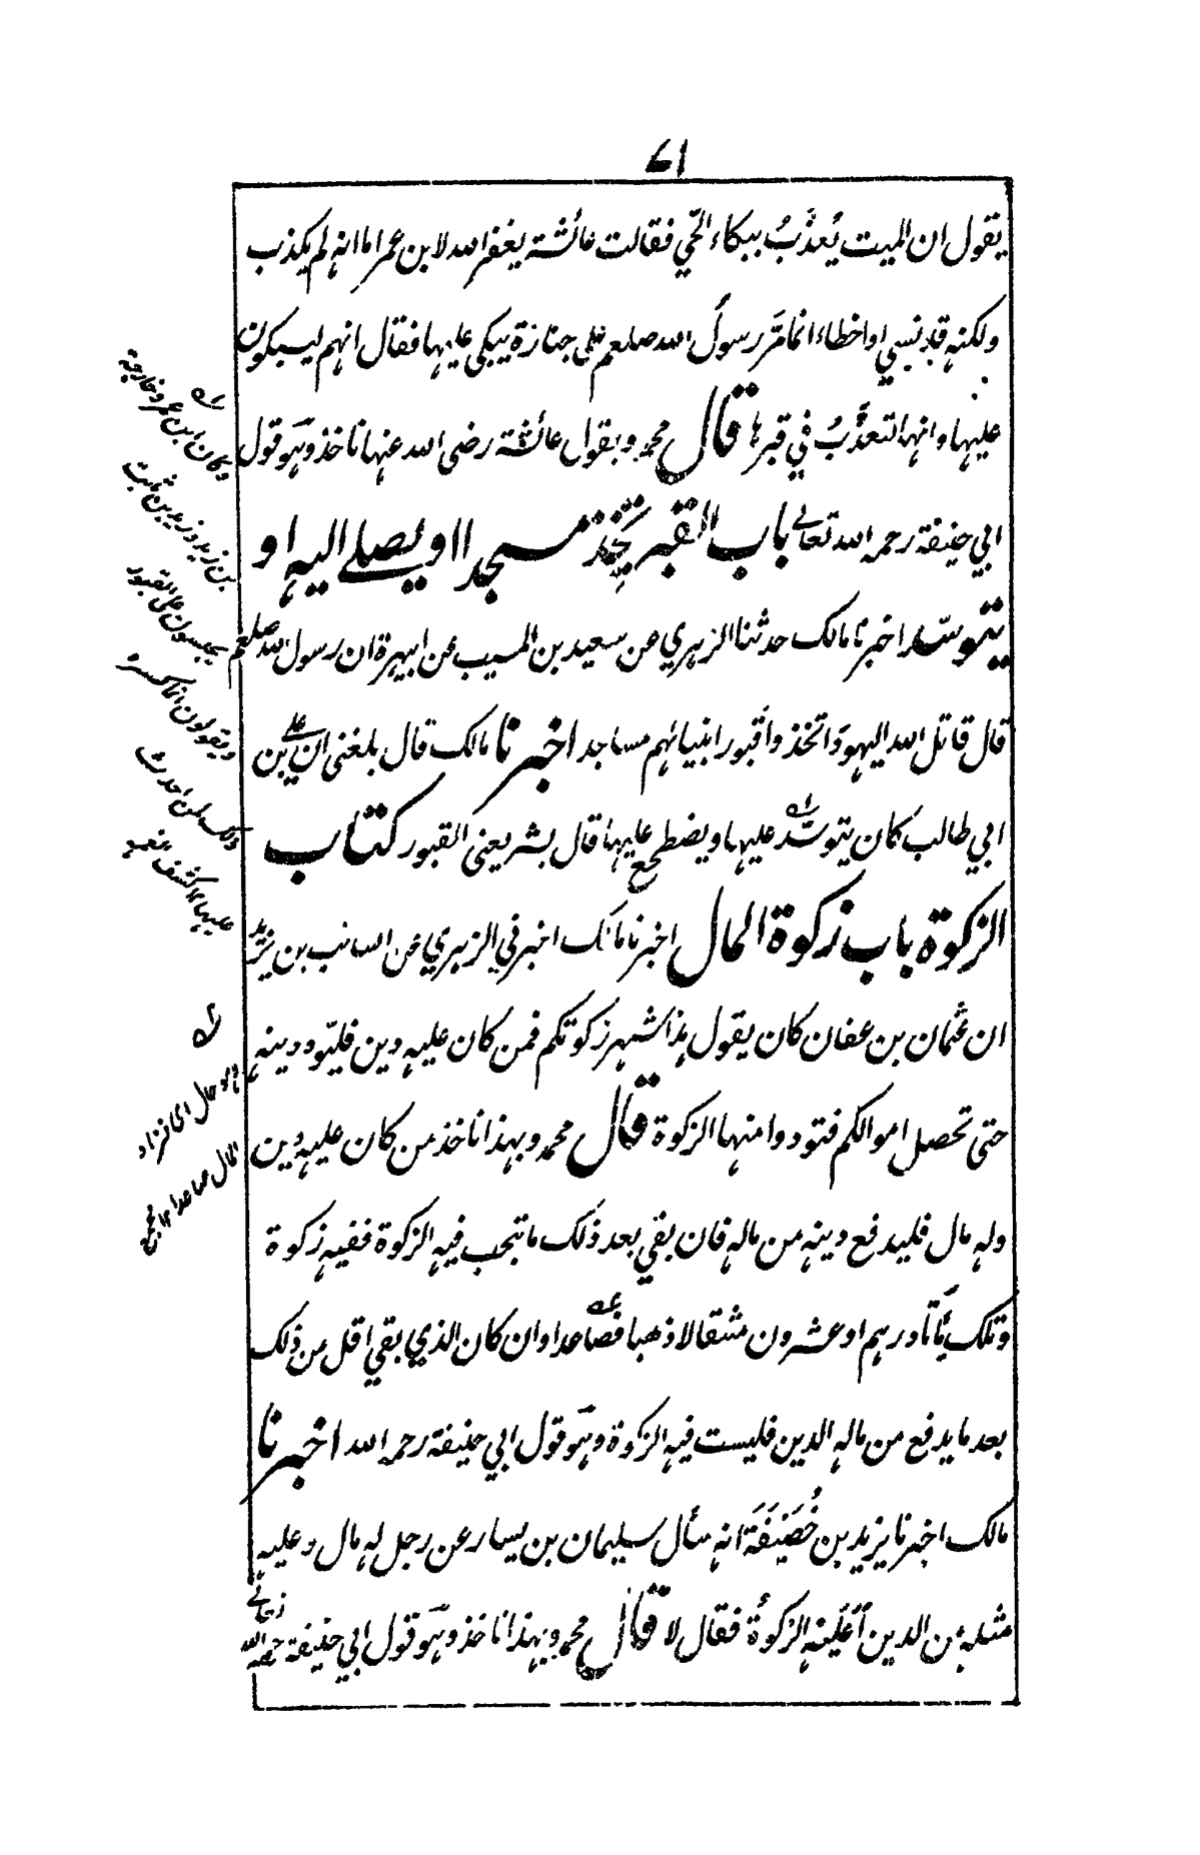 ٧١
يقول ان الميت يُعذَّبُ ببكاء الحّي فقالت عائشة يغفر الله لابن عمر اما انہ لم يكذب
ولكنہ قد نسي او اخطاء انما مَرَّ رسولُ الله صلعم على جنازة يبكى عليہا فقال انہم ليبكون
عليہا وانہا لتعذَّبُ في قبرہا قال محمد وبقول عائشة رضى الله عنہا ناخذ وہو قول
ابي حنيفة رحمہ الله تعالے باب القبر يتخذ مسجدا او يصلے اليہ او
يتوسّد اخبرنا مالك حدثنا الزہري عن سعيد بن المسيب عن ابي ہريرة ان رسول الله صلعم
قال قاتل الله اليہود اتخذوا قبور انبيائہم مساجد اخبرنا مالك قال بلغنى ان علي بن
ابي طالب كان يتوسّد عليہا ويضطجع عليہا قال بشر يعنى القبور كتاب
الزكوة باب زكوة المال اخبرنا مالك اخبرني الزہري عن السائب بن يزيد
ان عثمان بن عفان كان يقول ہذا شہر زكوتكم فمن كان عليہ دين فليؤد دينہ
حتى تحصل اموالكم فتودوا منہا الزكوة قال محمد وبہذا ناخذ من كان عليہ دين
ولہ مال فليدفع دينہ من مالہ فان بقي بعد ذلك ما تجب فيہ الزكوة ففيہ زكوة
وتلك مأتا درہم او عشرون مثقالا ذهبا فصاعدا وان كان الذي بقي اقل من ذلك
بعد ما يدفع من مالہ الدين فليست فيہ الزكوة وہو قول ابي حنيفة رحمہ الله اخبرنا
مالك اخبرنا يزيد بن خُصَيْفَة انہ سأل سليمان بن يسار عن رجل لہ مال وعليہ
مثلہ من الدين أعليہ الزكوة فقال لا قال محمد وبہذا ناخذ وہو قول ابي حنيفة رحمہ الله تعالے
وكان ابن عمر وخارجة
بن زيد وزيد بن ثابت
يجلسون على القبور
ويقولون انما كره
ذلك لمن احدث
عليہا